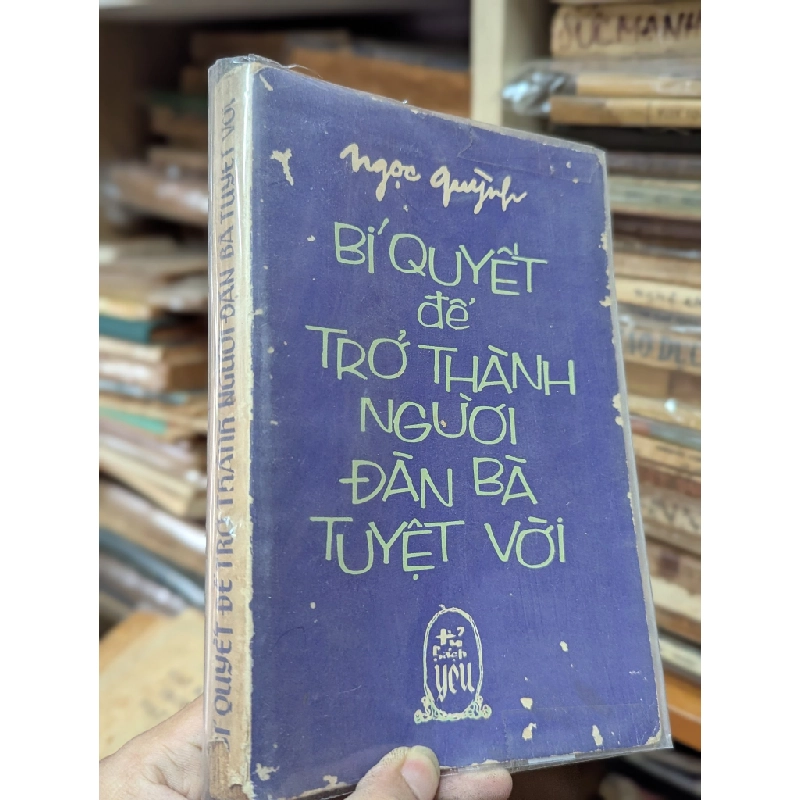 Ngọc Quỳnh
BÍ QUYẾT
để
TRỞ THÀNH
NGƯỜI
ĐÀN BÀ
TUYỆT VỜI
tủ
sách
yêu
BÍ QUYẾT ĐỂ TRỞ THÀNH NGƯỜI ĐÀN BÀ TUYỆT VỜI
SỨC MẠNH